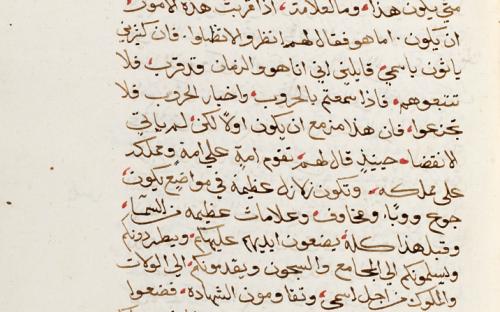 متى يكون هذا، وما العلامة، اذا قربت هذه الامور
ان يكون. اما هو فقال لهم انظروا لا تضلوا. فان كثيرين
ياتون باسمي قايلين اني انا هو والزمان قد قرب. فلا
تتبعوهم، فاذا سمعتم بالحروب، واخبار الحروب فلا
تجزعوا، فان هذا مزمع ان يكون اولًا، لكن لم ياتي
الانقضا، حينيذٍ قال لهم، تقوم امة على امة، ومملكة
على مملكه، وتكون زلازل عظيمه في مواضع يكون،
جوع ووبًا، ومخاوف، وعلامات عظيمه من السمآء
وقبل هذا كله، يضعون ايديهم عليكم، ويطردونكم
ويسلمونكم الى المجامع والسجون ويقدمونكم الى الولات
والملوك من اجل اسمي، وتقاومون الشهادة، فضعوا